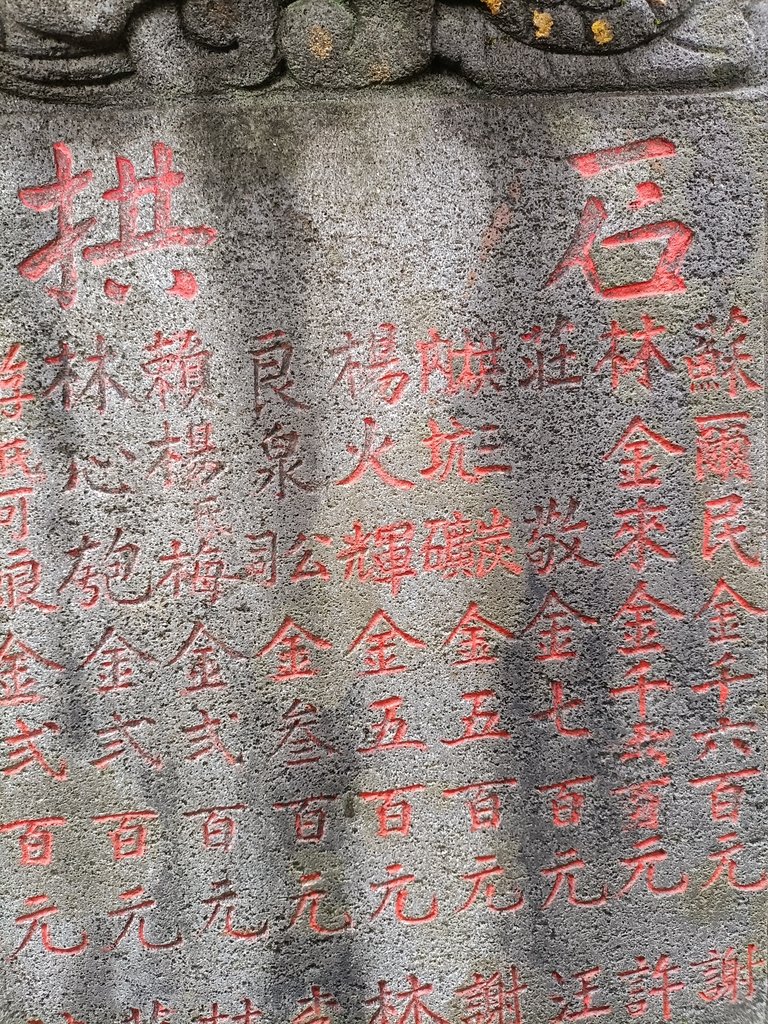 石拱
蘇爾民金千六百元
林金來金千六百元
莊敬金七百元
內三坑炭礦金五百元
楊火輝金五百元
良泉公司金叁百元
賴楊氏梅金弍百元
林心匏金弍百元
金弍百元
謝
許
汪
謝
林